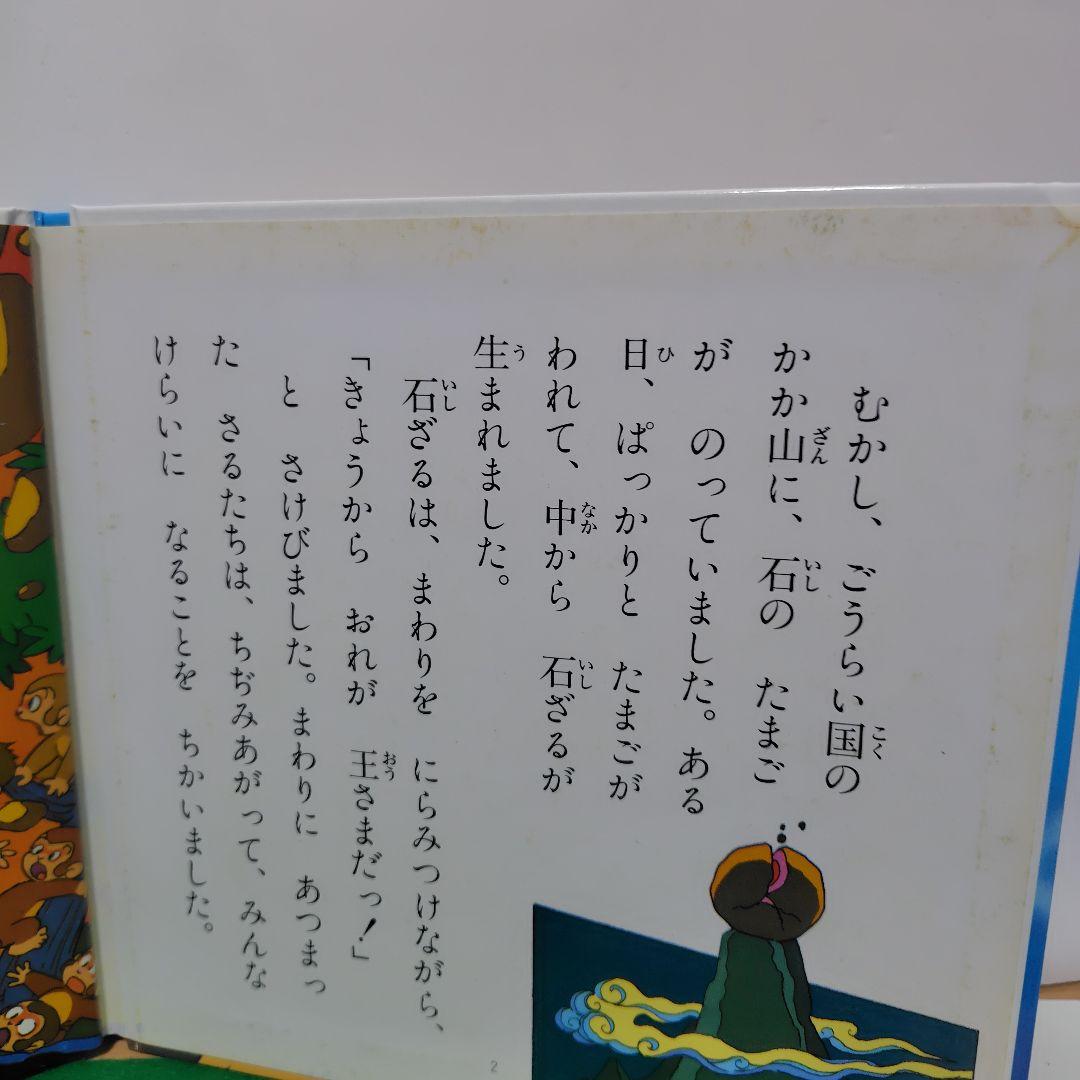 むかし、ごうらい国の
かか山に、石の たまご
が のっていました。ある
日、ぱっかりと たまごが
われて、中から 石ざるが
生まれました。
石ざるは、まわりを にらみつけながら、
「きょうから おれが 王さまだっ！」
と さけびました。まわりに あつまっ
た さるたちは、ちぢみあがって、みんな
けらいに なることを ちかいました。
2